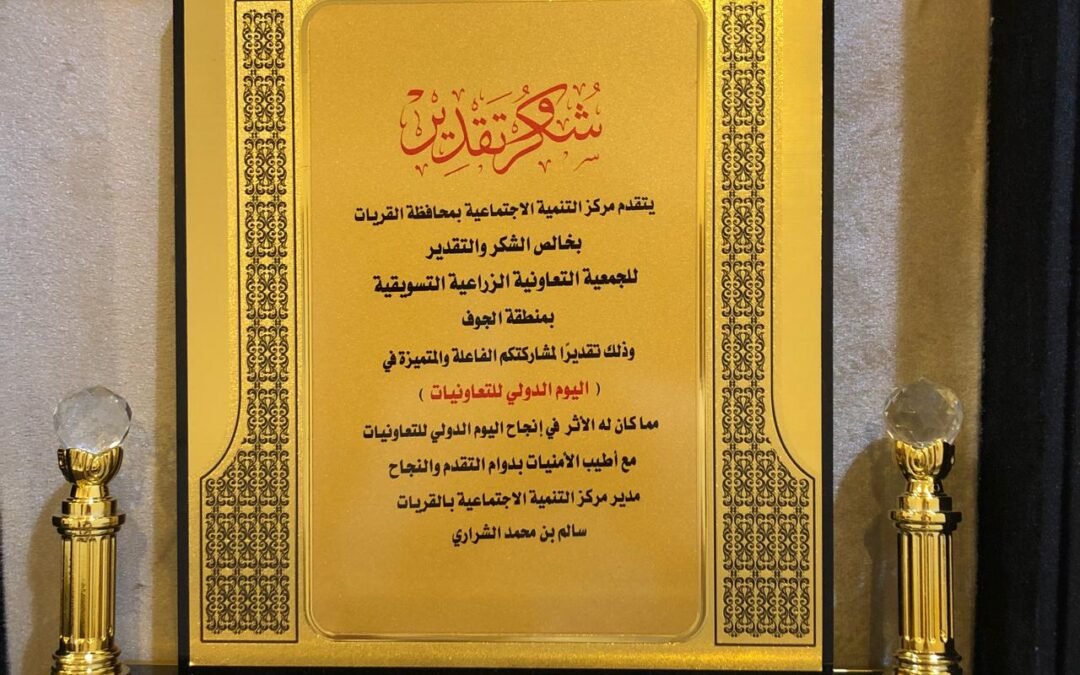 شكر وتقدير
يتقدم مركز التنمية الاجتماعية بمحافظة القريات
بخالص الشكر والتقدير
للجمعية التعاونية الزراعية التسويقية
بمنطقة الجوف
وذلك تقديرًا لمشاركتكم الفاعلة والمتميزة في
( اليوم الدولي للتعاونيات )
مما كان له الأثر في إنجاح اليوم الدولي للتعاونيات
مع أطيب الأمنيات بدوام التقدم والنجاح
مدير مركز التنمية الاجتماعية بالقريات
سالم بن محمد الشراري